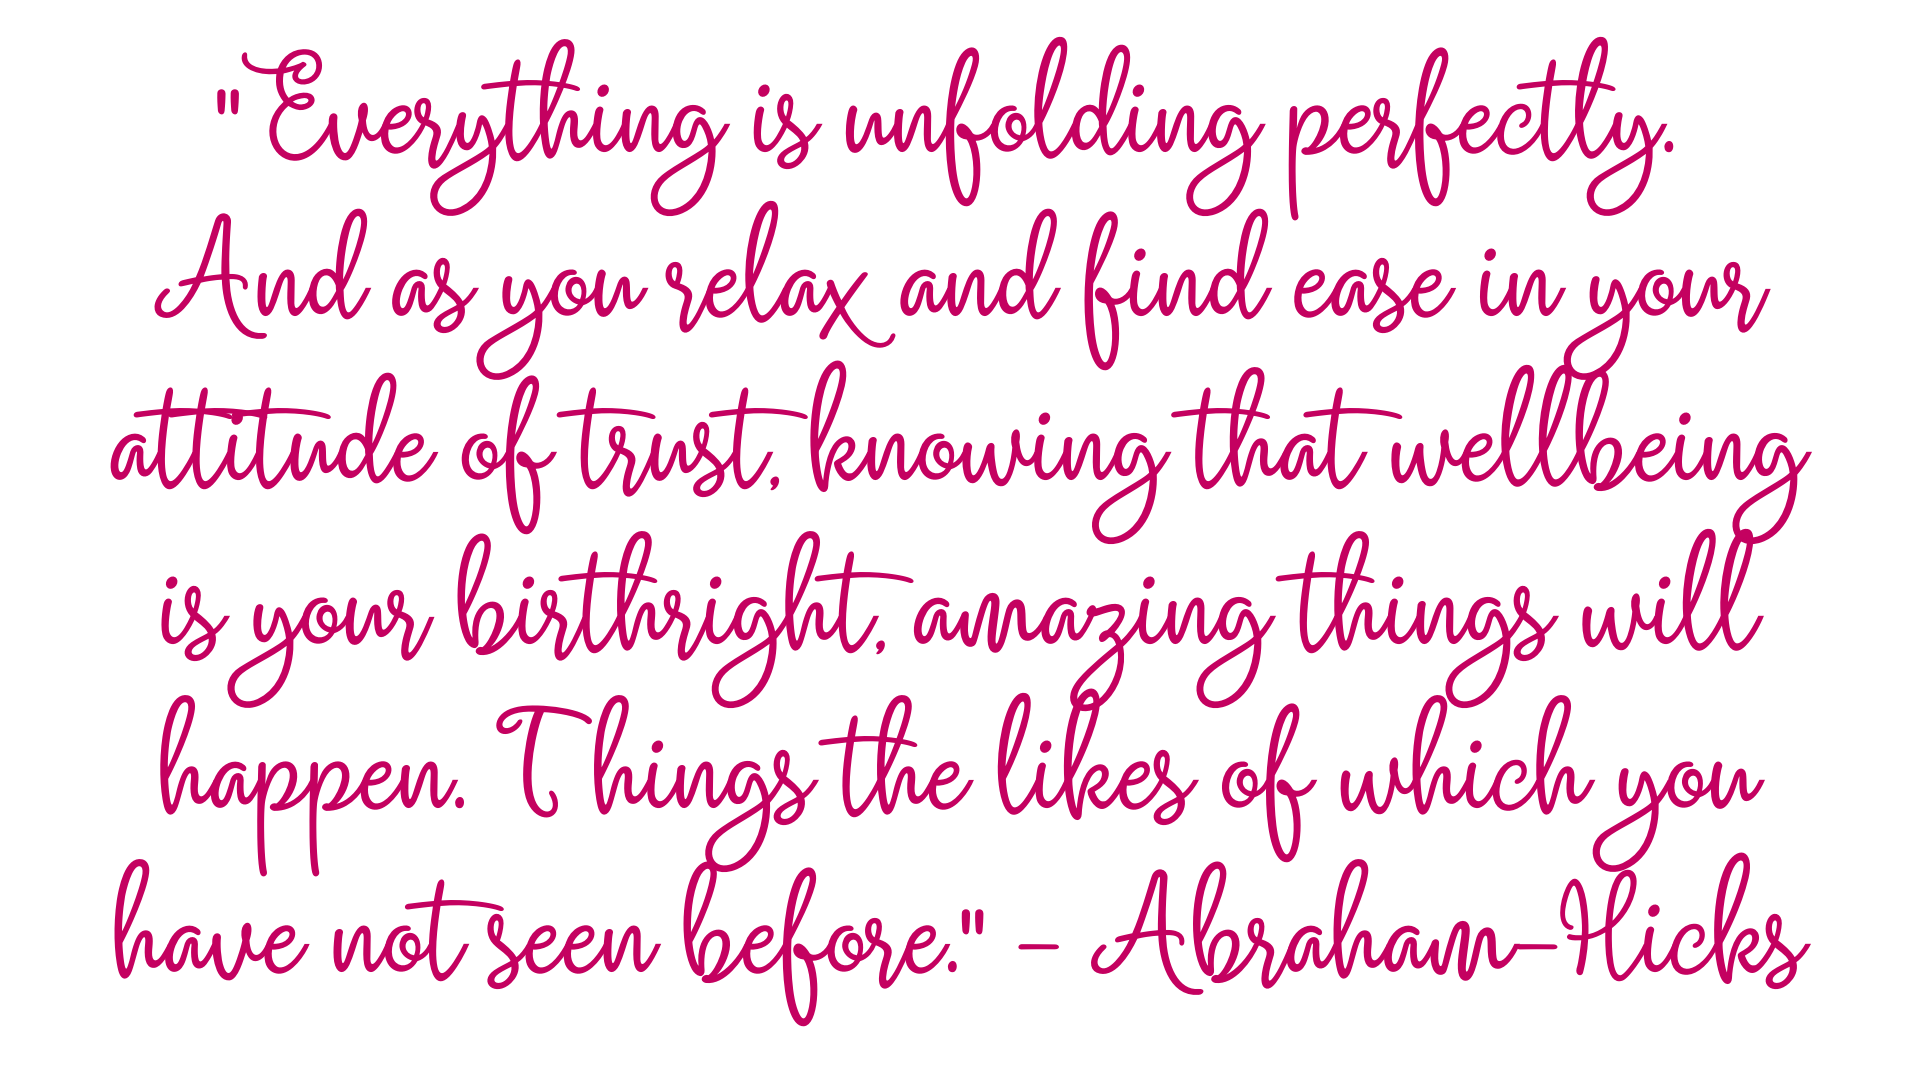 "Everything is unfolding perfectly.
And as you relax and find ease in your
attitude of trust, knowing that wellbeing
is your birthright, amazing things will
happen. Things the likes of which you
have not seen before." - Abraham-Hicks